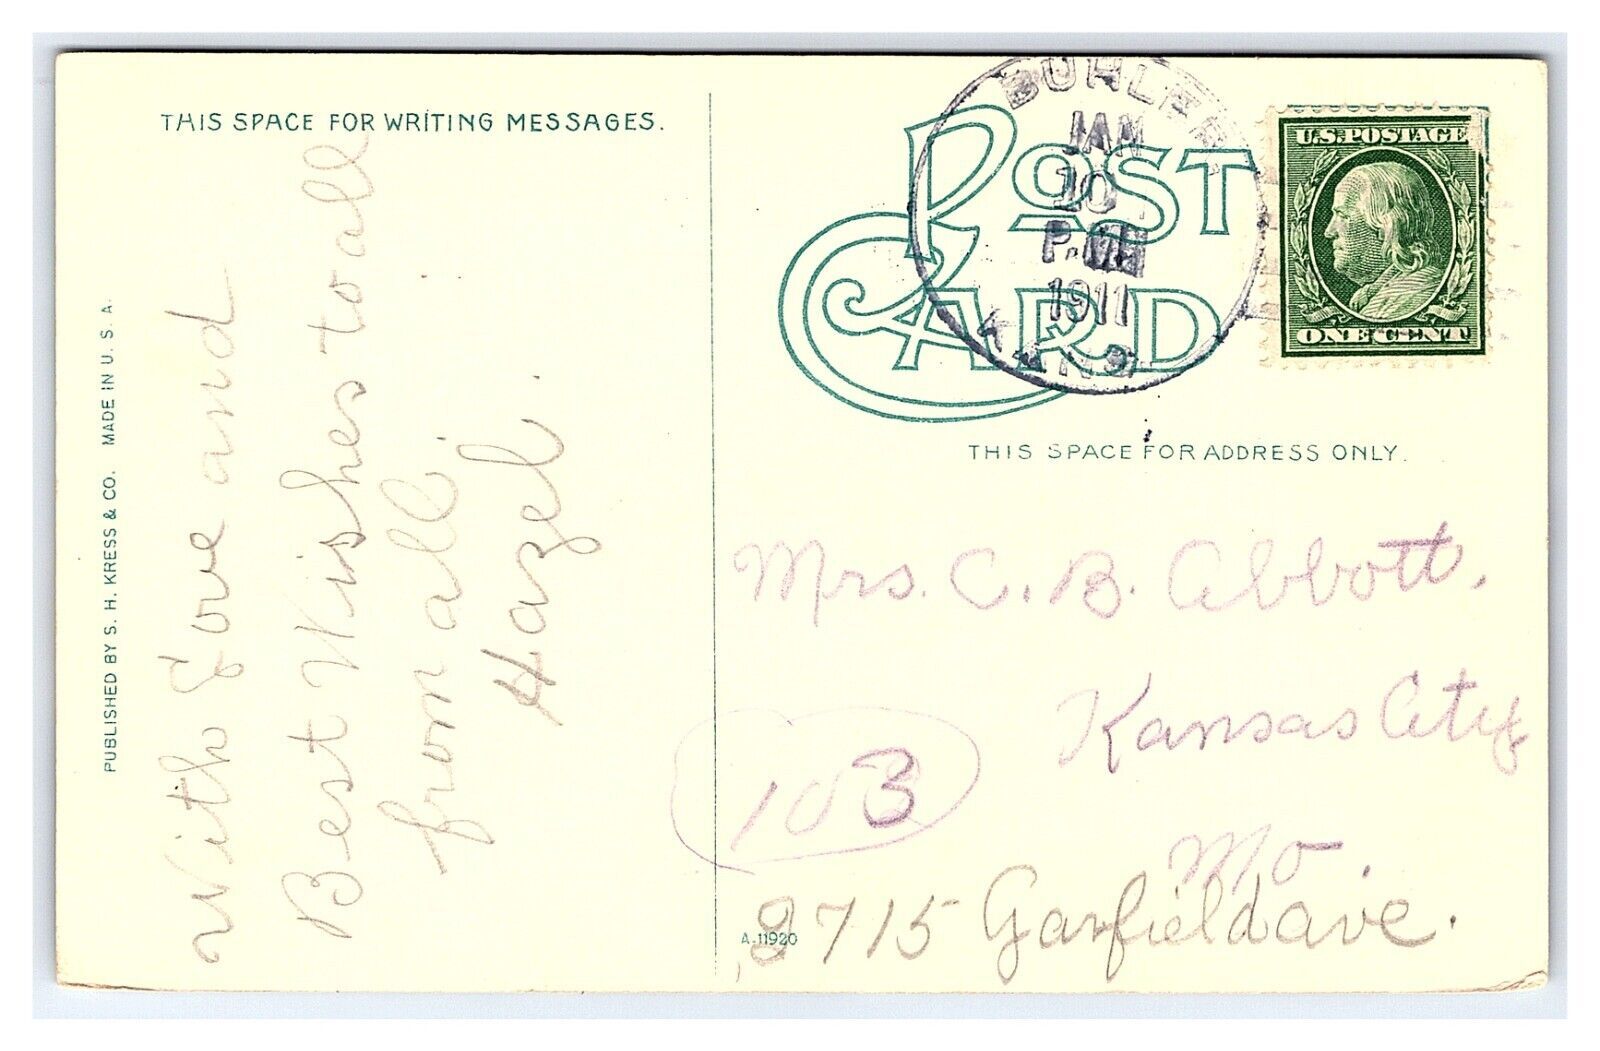 THIS SPACE FOR WRITING MESSAGES.
With Love and
Best Wishes to all
from all.
Hazel.
PUBLISHED BY S. H. KRESS & CO. MADE IN U. S. A.
POST CARD
BUHLER,
JAN
10
P.M.
1911
KANS.
U.S. POSTAGE
ONE CENT
THIS SPACE FOR ADDRESS ONLY.
Mrs. C. B. Abbott.
Kansas City
Mo.
103
2715 Garfield ave.
A-11920